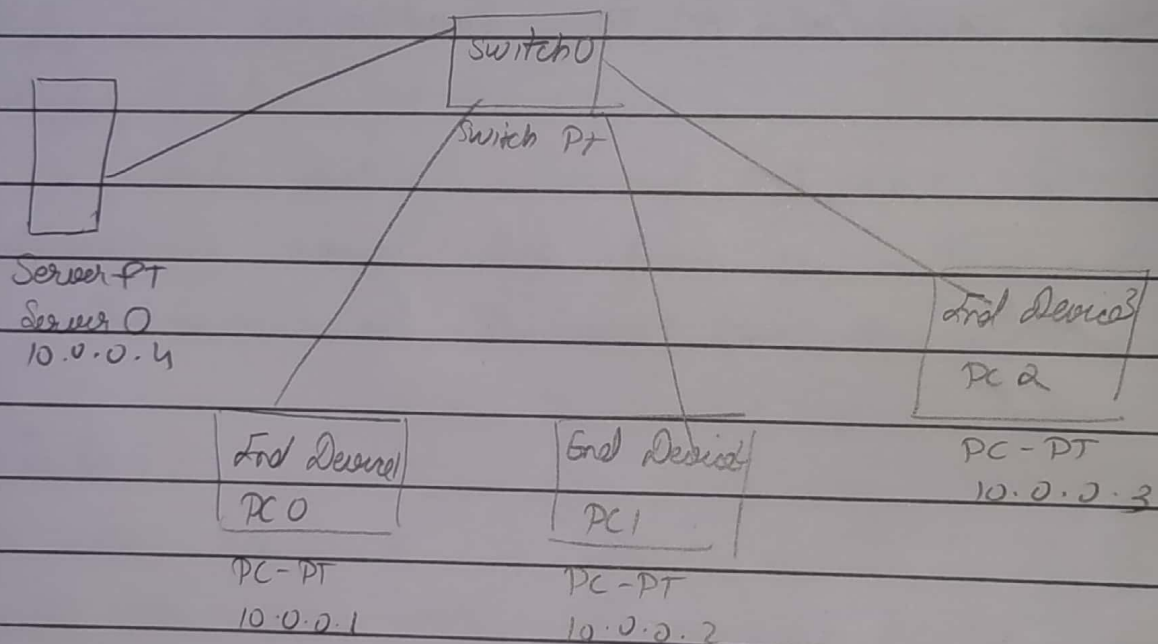 Switch0
Switch PT
Server-PT
Server 0
10.0.0.4
End Device3
PC 2
PC-PT
10.0.0.3
End Device1
PC0
PC-PT
10.0.0.1
End Device2
PC1
PC-PT
10.0.0.2